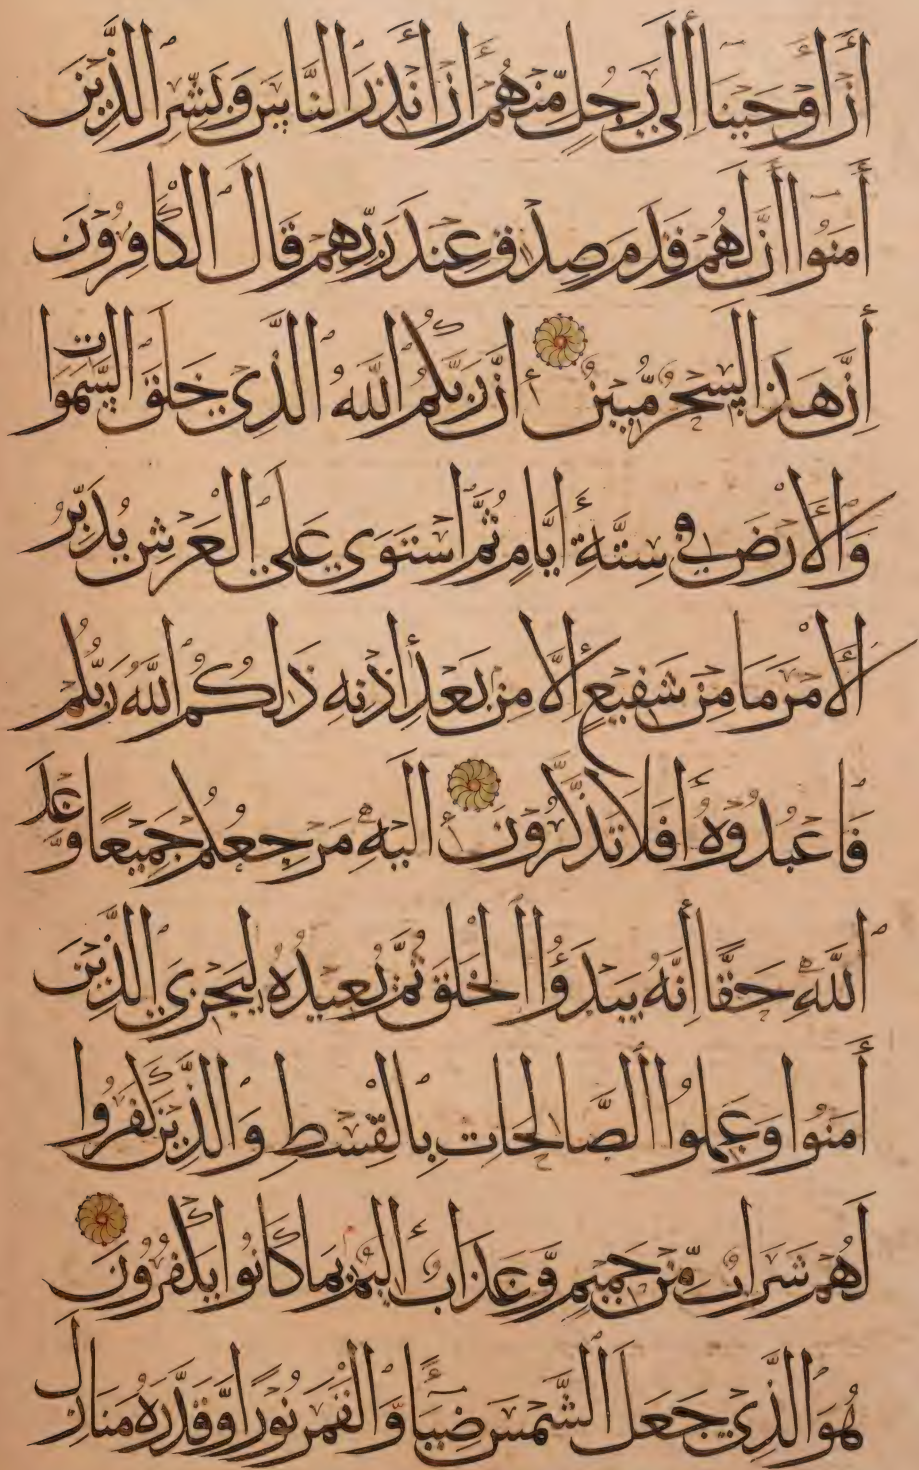 أَنْ أَوْحَيْنَا إِلَىٰ رَجُلٍ مِّنْهُمْ أَنْ أَنْذِرِ النَّاسَ وَبَشِّرِ الَّذِينَ
أٰمَنُوا أَنَّ لَهُمْ قَدَمَ صِدْقٍ عِنْدَ رَبِّهِمْ قَالَ الْكَافِرُونَ
إِنَّ هَذَا لَسِحْرٌ مُّبِينٌ إِنَّ رَبَّكُمُ اللَّهُ الَّذِي خَلَقَ السَّمٰوَاتِ
وَالْأَرْضَ فِي سِتَّةِ أَيَّامٍ ثُمَّ اسْتَوَى عَلَى الْعَرْشِ يُدَبِّرُ
الْأَمْرَ مَا مِنْ شَفِيعٍ إِلَّا مِنْ بَعْدِ إِذْنِهِ ذَلِكُمُ اللَّهُ رَبُّكُمْ
فَاعْبُدُوهُ أَفَلَا تَذَكَّرُونَ إِلَيْهِ مَرْجِعُكُمْ جَمِيعًا وَّعْدَ
اللَّهِ حَقًّا إِنَّهُ يَبْدَؤُا الْخَلْقَ ثُمَّ يُعِيدُهُ لِيَجْزِيَ الَّذِينَ
أٰمَنُوا وَعَمِلُوا الصَّالِحَاتِ بِالْقِسْطِ وَالَّذِينَ كَفَرُوا
لَهُمْ شَرَابٌ مِّنْ حَمِيمٍ وَّعَذَابٌ أَلِيمٌ بِمَا كَانُوا يَكْفُرُونَ
هُوَ الَّذِي جَعَلَ الشَّمْسَ ضِيَاءً وَّالْقَمَرَ نُورًا وَّقَدَّرَهُ مَنَازِلَ